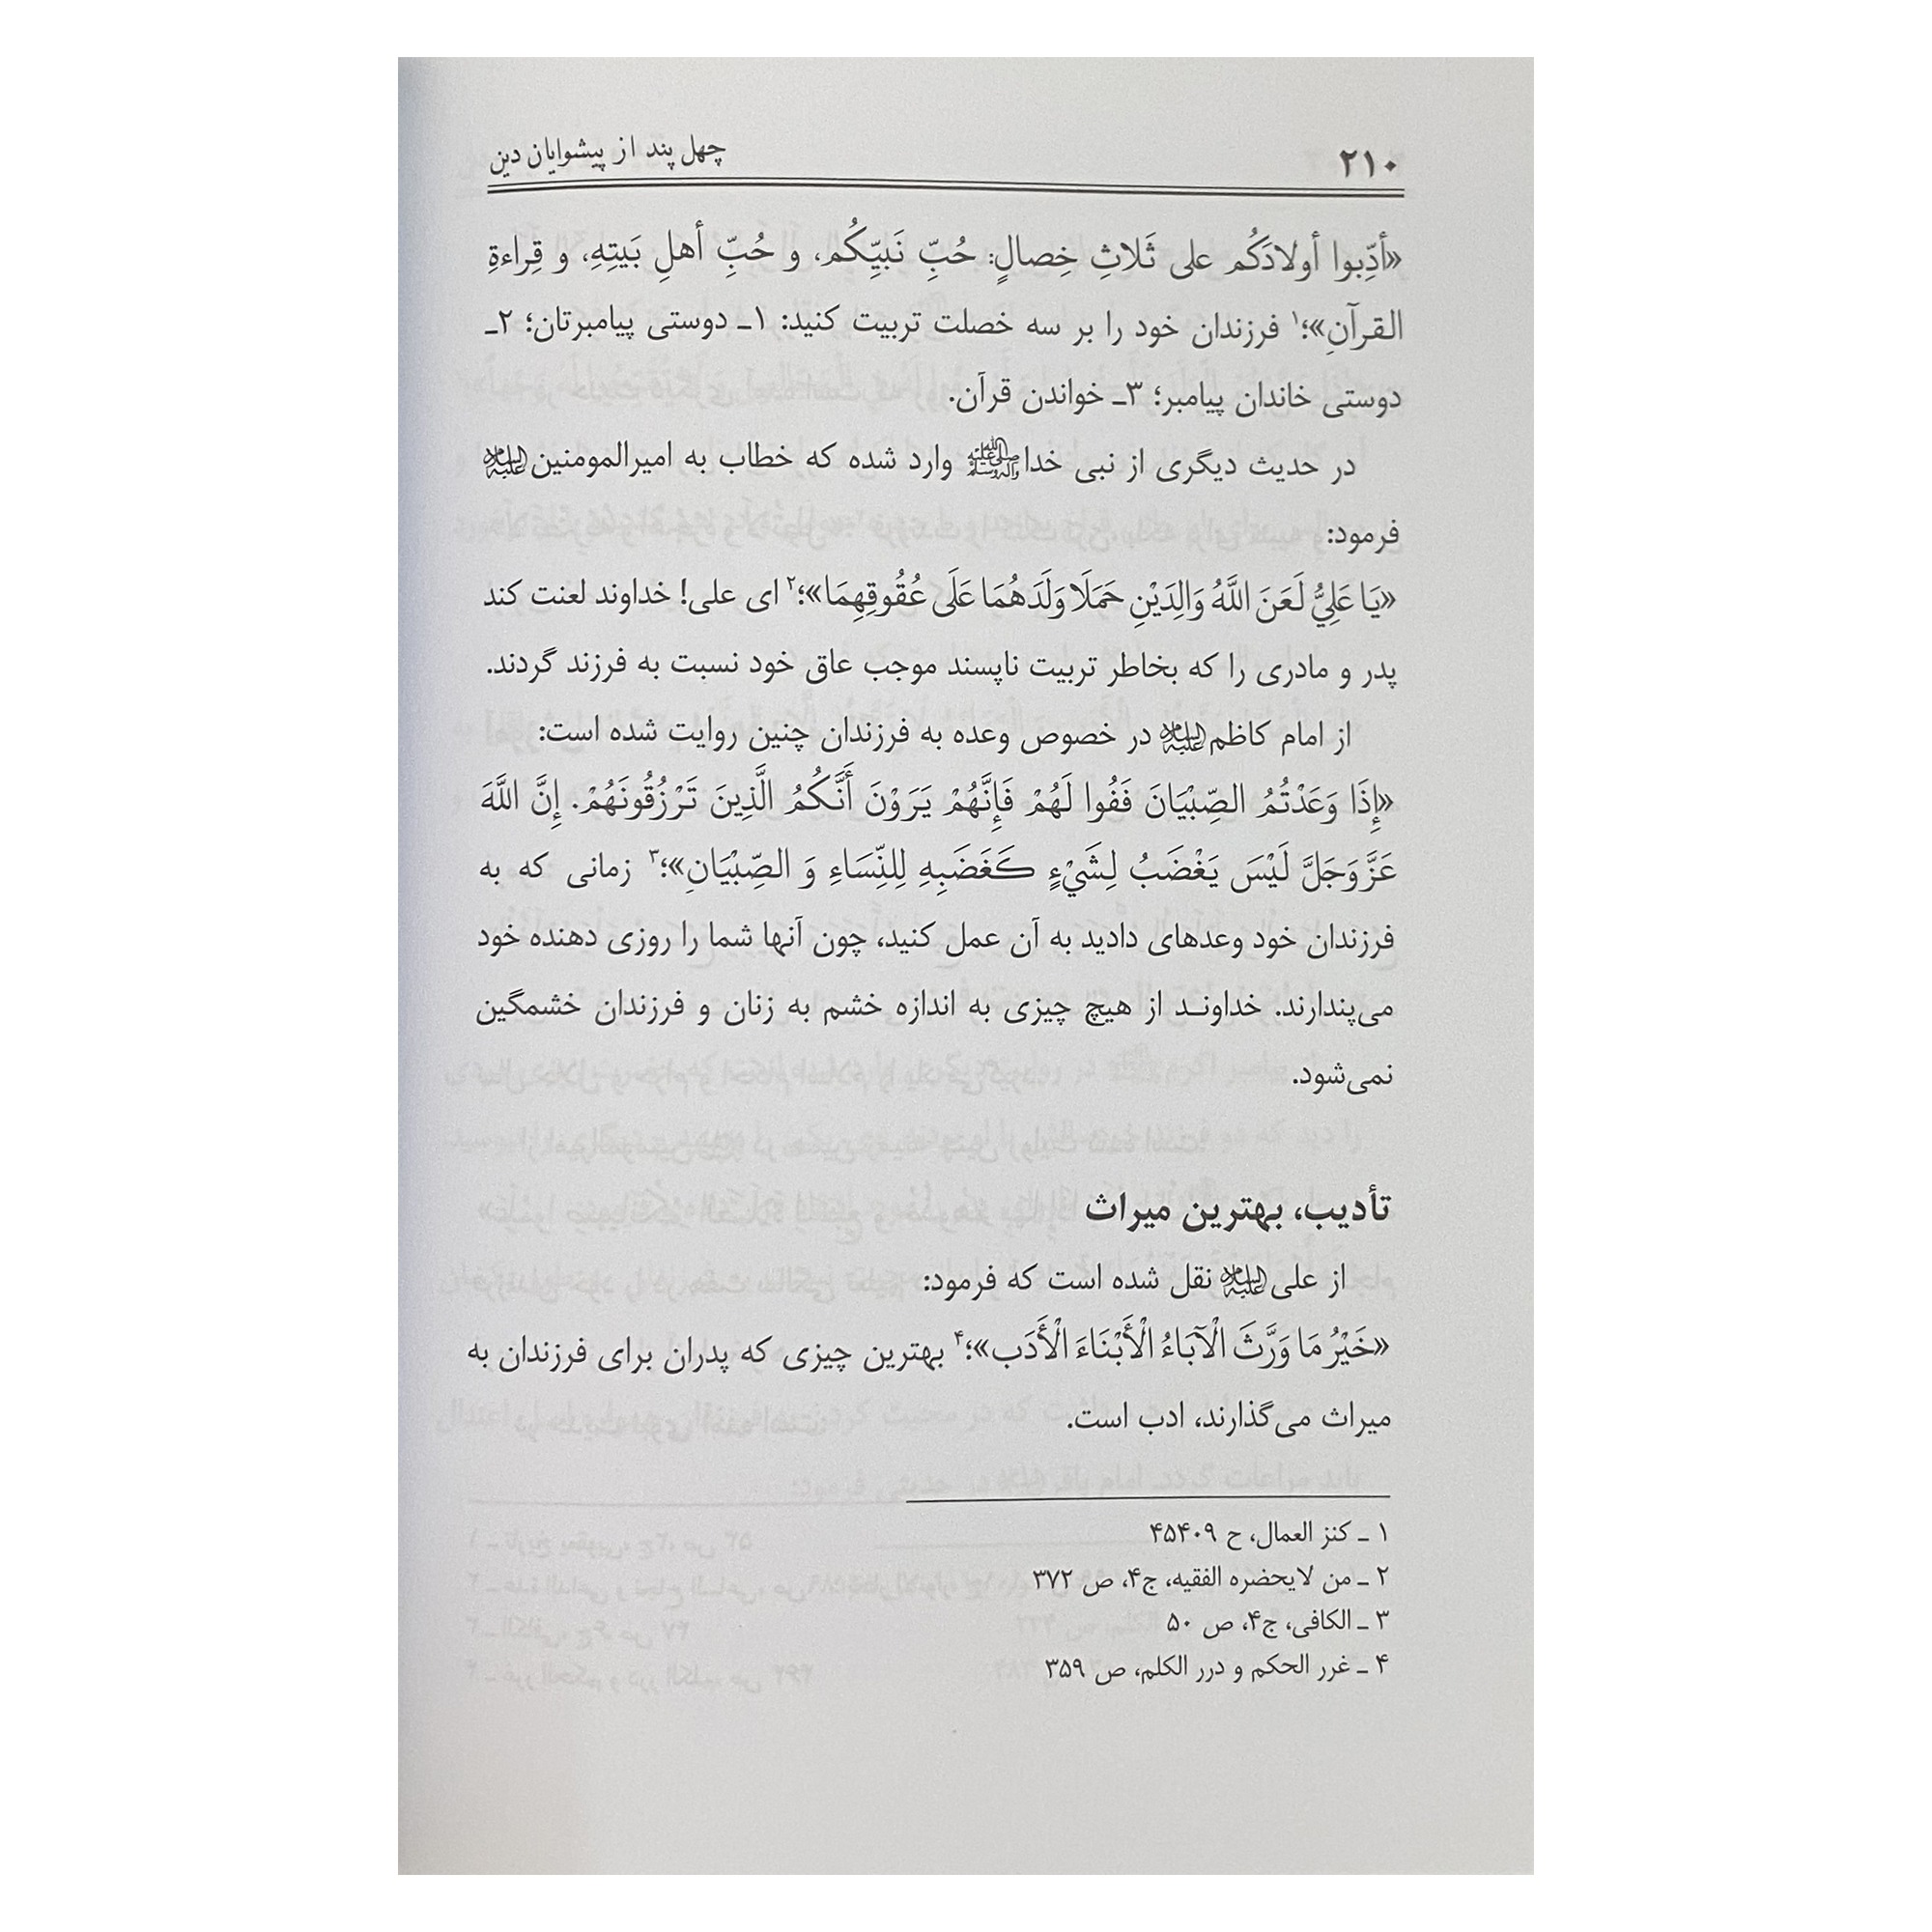 ۲۱۰ چهل پند از پیشوایان دین
«أدِّبوا أولادَكُم علی ثَلاثِ خِصالٍ: حُبِّ نَبيِّكُم، و حُبِّ أهلِ بَيتِهِ، و قِراءةِ
القرآنِ»؛۱ فرزندان خود را بر سه خصلت تربیت کنید: ۱ـ دوستی پیامبرتان؛ ۲ـ
دوستی خاندان پیامبر؛ ۳ـ خواندن قرآن.
در حدیث دیگری از نبی خداﷺ وارد شده که خطاب به امیرالمومنین علیه‌السلام
فرمود:
«يَا عَلِيُّ لَعَنَ اللَّهُ وَالِدَيْنِ حَمَلَا وَلَدَهُمَا عَلَى عُقُوقِهِمَا»؛۲ ای علی! خداوند لعنت کند
پدر و مادری را که بخاطر تربیت ناپسند موجب عاق خود نسبت به فرزند گردند.
از امام کاظم علیه‌السلام در خصوص وعده به فرزندان چنین روایت شده است:
«إِذَا وَعَدْتُمُ الصِّبْيَانَ فَفُوا لَهُمْ فَإِنَّهُمْ يَرَوْنَ أَنَّكُمُ الَّذِينَ تَرْزُقُونَهُمْ. إِنَّ اللَّهَ
عَزَّوَجَلَّ لَيْسَ يَغْضَبُ لِشَيْءٍ كَغَضَبِهِ لِلنِّسَاءِ وَ الصِّبْيَانِ»؛۳ زمانی که به
فرزندان خود وعدهای دادید به آن عمل کنید، چون آنها شما را روزی دهنده خود
می‌پندارند. خداونـد از هیچ چیزی به اندازه خشم به زنان و فرزندان خشمگین
نمی‌شود.
تأدیب، بهترین میراث
از علی علیه‌السلام نقل شده است که فرمود:
«خَيْرُ مَا وَرَّثَ الْآبَاءُ الْأَبْنَاءَ الْأَدَب»؛۴ بهترین چیزی که پدران برای فرزندان به
میراث می‌گذارند، ادب است.
۱ ـ کنز العمال، ح ۴۵۴۰۹
۲ ـ من لایحضره الفقیه، ج۴، ص ۳۷۲
۳ ـ الکافی، ج۴، ص ۵۰
۴ ـ غرر الحکم و درر الکلم، ص ۳۵۹